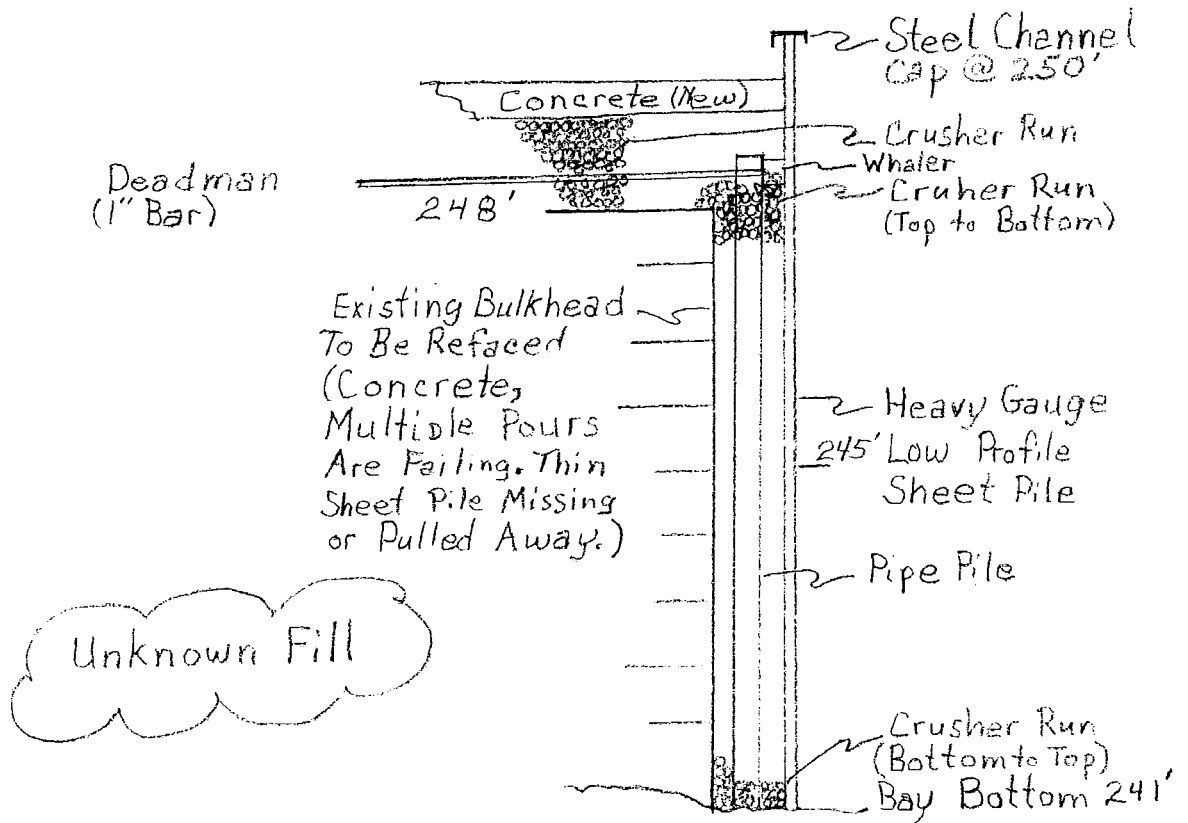 Steel Channel
Cap @ 250'
Concrete (New)
Crusher Run
Whaler
Deadman
(1" Bar)
248'
Cruher Run
(Top to Bottom)
Existing Bulkhead
To Be Refaced
(Concrete,
Multiple Pours
Are Failing. Thin
Sheet Pile Missing
or Pulled Away.)
Heavy Gauge
245' Low Profile
Sheet Pile
Pipe Pile
Unknown Fill
Crusher Run
(Bottom to Top)
Bay Bottom 241'